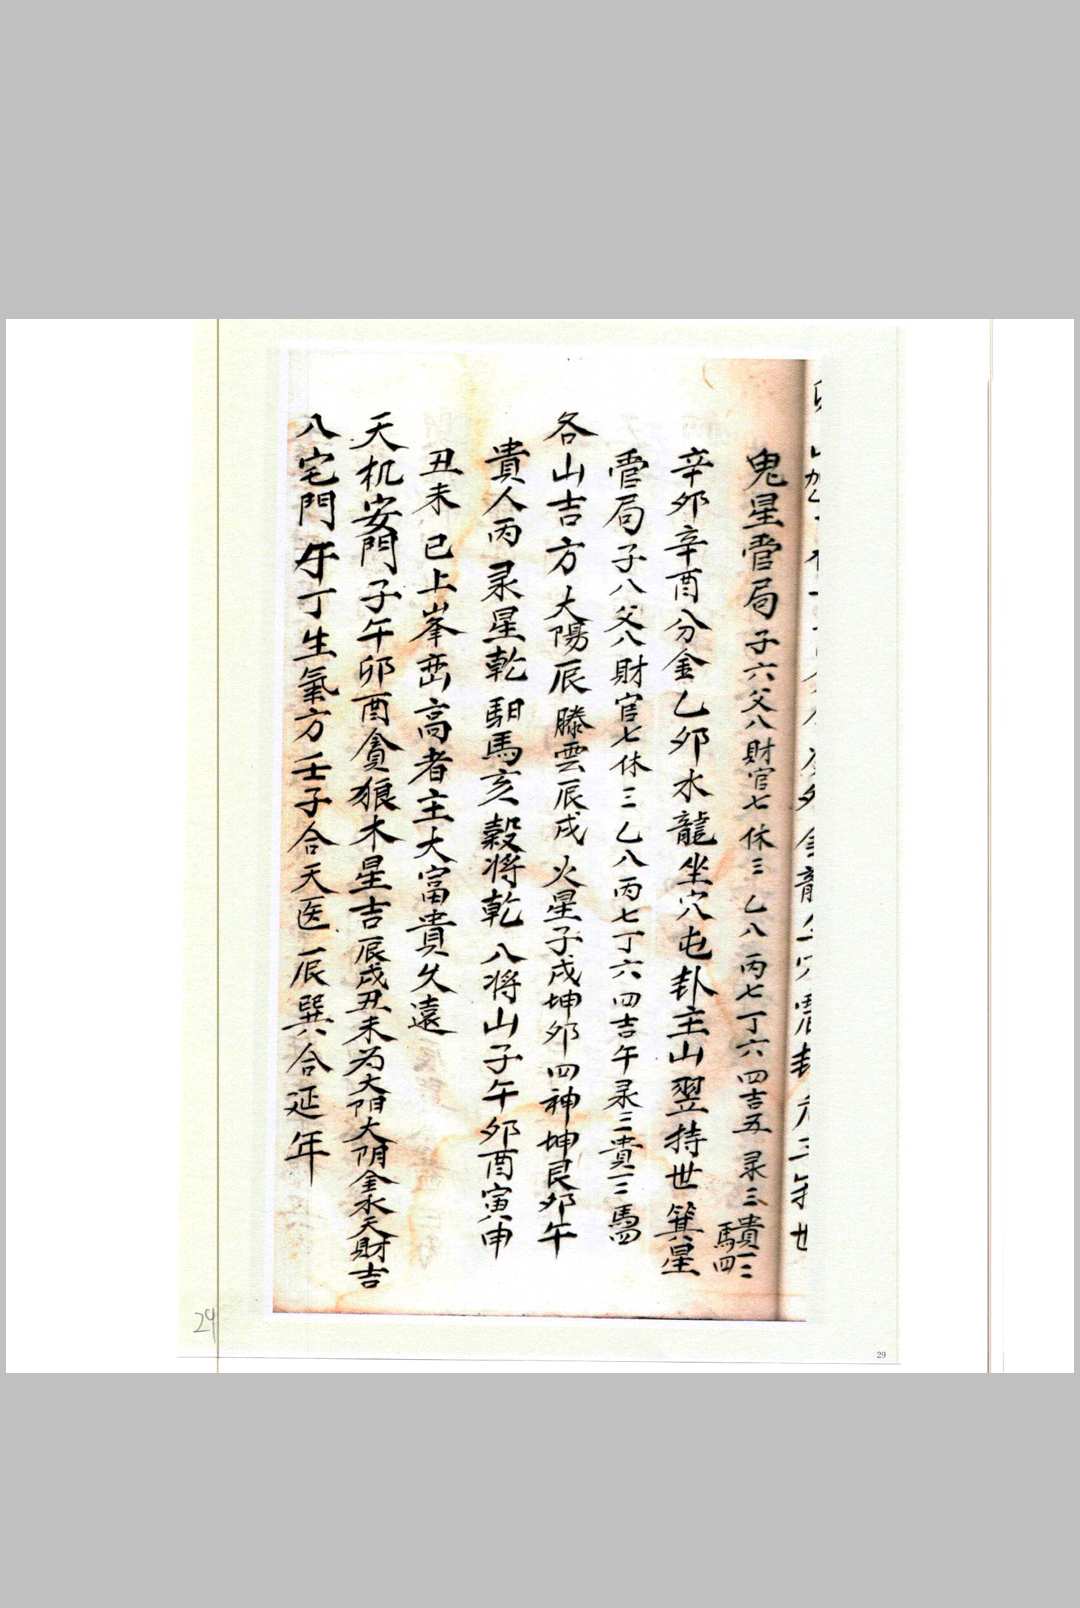 鬼星雷局子六父八財官七休三乙八丙七丁六四吉五彔三貴一三馬四
辛夘辛酉分金乙夘水龍坐穴屯卦主山翌持世箕星
雷局子八父八財官七休三乙八丙七丁六四吉午彔三貴一三馬四
各山吉方太陽辰滕雲辰戌火星子戌坤夘四神坤艮夘午
貴人丙彔星乾馹馬亥穀将乾八将山子午夘酉寅申
丑未已上峯峦高者主大富貴久遠
天机安門子午卯酉貪狼木星吉辰戌丑未为太阳太阴金水天財吉
八宅門午丁生氣方壬子合天医辰巽合延年
29
29